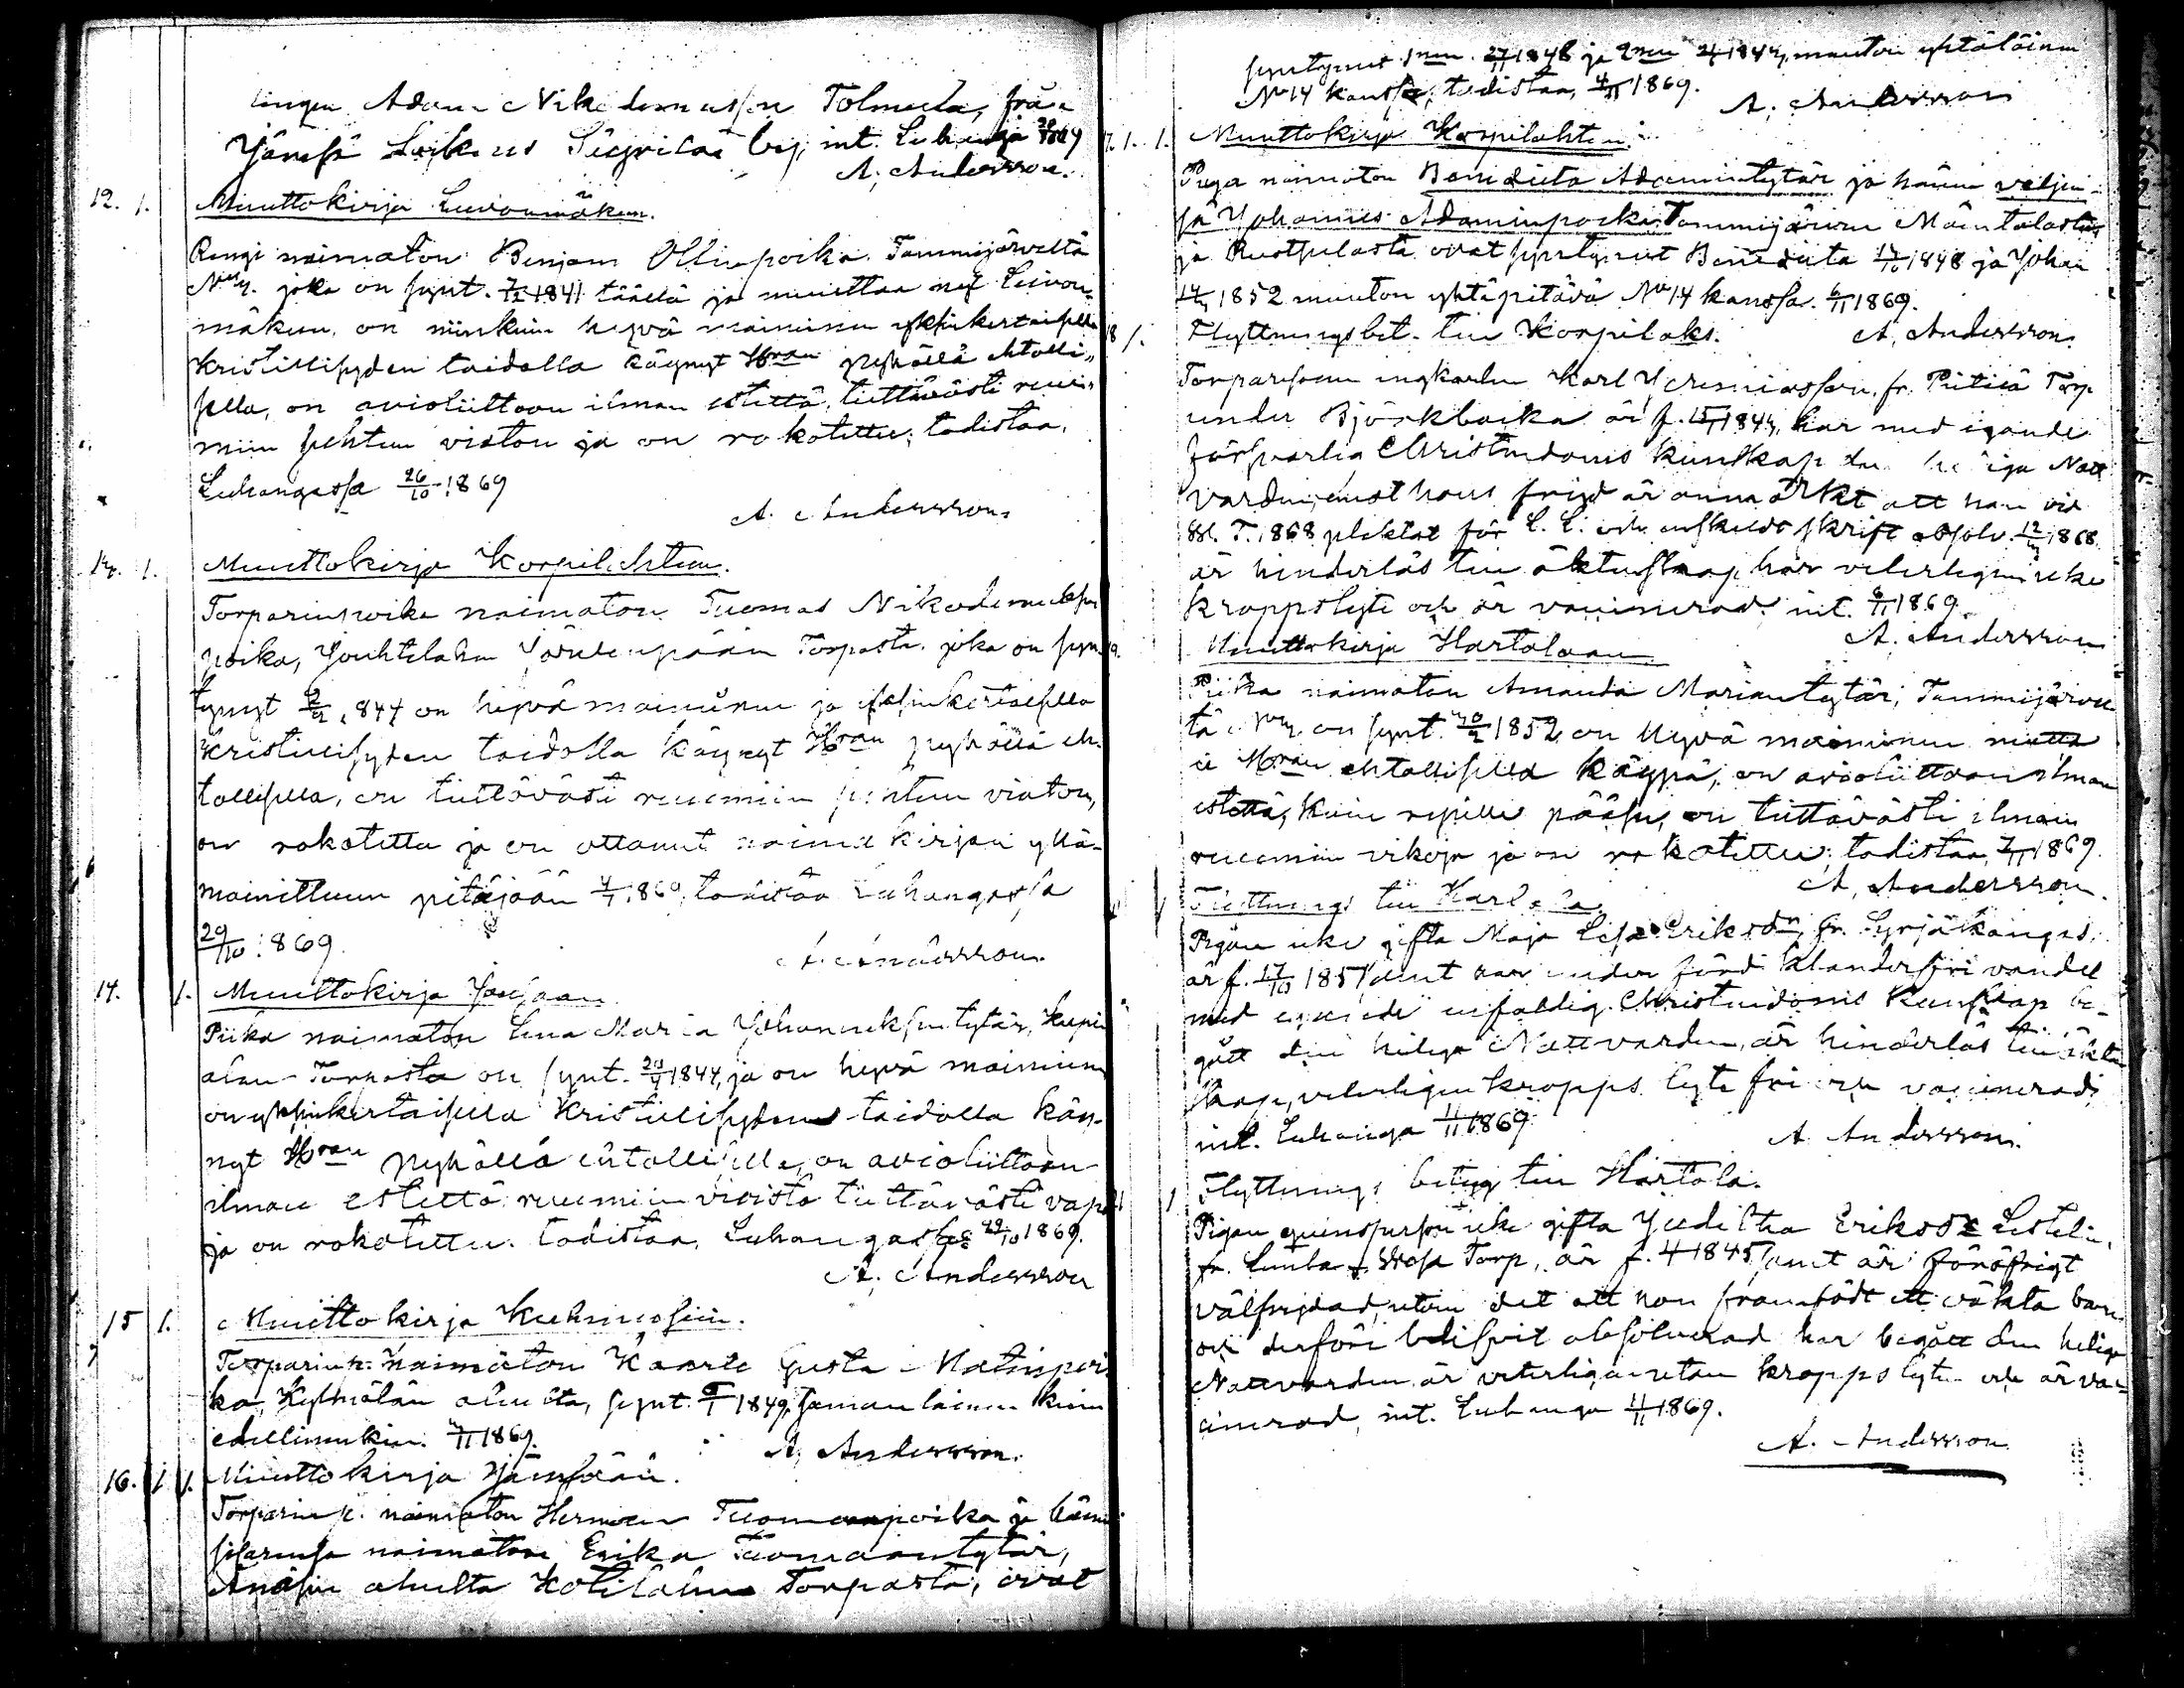 ungen Adam Nikodemusson Tolmula, från
Jämsä Sokens by, int. Luhanga 1869
A. Andersson.
12. 1. Muuttokirja Leivonmäkeen.
Rengi naimaton Benjam Ollinpoika Tammijärveltä
No 4. joka on synt. 7/12 1841 täällä ja muuttaa nyt Leivon-
mäkeen, on niinkuin hyvä maininen yksinkertaisella
kristillisyden taidolla käynyt Hran pyhällä ehtolli-
sella, on avioliittoon ilman estettä, tiettävästi ruu-
miin puhteen viaton ja on rokotettu; todistaa,
Luhangassa 26/10 1869
A. Andersson.
1. Muuttokirja Korpilahteen.
Torparinpoika naimaton Tuomas Nikodemuksen
poika, Jouhtilahen Järvenpään Torpasta, joka on syn-
tynyt 1844 on hyvä maininen ja yksinkertaisella
kristillisyden taidolla käynyt Hran pyhällä eh-
tollisella, on tiettävästi ruumiin puhteen viaton,
on rokotettu ja on ottanut naima kirjan yllä-
mainittuun pitäjään todistaa Luhangassa
29/10 1869.
A. Andersson.
14. 1. Muuttokirja Joutsaan
Piika naimaton Lena Maria Johanneksentytär,
alan Torpasta on synt. 1844, ja on hyvä maininen
on yksinkertaisella kristillisyden taidolla käy-
nyt Hran pyhällä ehtollisella, on avioliittoon
ilman estettä ruumiin vioista tiettävästi vapa
ja on rokotettu. todistaa, Luhangassa 29/10 1869.
A. Andersson
15 1. Muuttokirja Kuhmosiin.
Torparin p. naimaton Kaarle Gusta Matinpoi-
ka, Kylmälän alueelta, synt. 1849, samanlainen kuin
edellinenkin. 1869.
A. Andersson.
16. 1 1. Muuttokirja Jämsään.
Torparin p. naimaton Herman Tuomaanpoika ja hänen
sisarensa naimaton Erika Tuomaantytär,
alueelta Kotilahen Torpasta, ovat
syntynet 1nen 1848 ja 2nen 1844, muuton yhtäläinen
No 14 kanssa, todistaa, 4/11 1869.
A. Andersson
17. 1. 1. Muuttokirja Korpilahteen.
Piiga naimaton Benedikta Adamintytär ja hänen veljen-
sä Johannes Adaminpoika Tammijärven Mäentalosta
ja Rustpilasta ovat syntynet Benedikta 1848 ja Johan
1852 muuton yhtäpitävä No 14 kanssa. 6/11 1869.
A. Andersson.
18 1. Flyttningsbet. till Korpilaks.
Torparesonen ungkarlen Karl Jeremiasson, fr. Torp
under Björkbacka är f. 1844, har med egande
försvarlig Christendoms kunskap den heliga Natt
varden, emot hans frejd är anmärkt att han vid
T. 1868 pliktat för L. L. och enskildt skrift. absolv. 1868
är hinderlös till äktenskap, har veterligen icke
kroppslyte och är vaccinerad, int. 6/11 1869.
A. Andersson
19. Muuttokirja Hartolaan
Piika naimaton Amanda Mariantytär, Tammijärvel-
tä on synt. 1852 on hyvä maininen mutta
ei Hran ehtollisella käypä, on avioliittoon ilman
estettä, kuin ripille pääsee, on tiettävästi ilman
ruumiin vikoja ja on rokotettu; todistaa, 7/11 1869
A. Andersson.
Flyttnings till Karlola.
Pigan icke gifta Maja Lisa Eriksdr, fr. Syrjäkangas,
är f. 17/10 1851, klanderfri vandel
med egande enfaldig Christendoms kunskap be-
gått den heliga Nattvarden, är hinderlös till äkten
skap, veterligen kropps lyte fri och vaccinerad,
int. Luhanga 11/11 1869
A. Andersson.
1 Flyttnings betyg till Hartola.
Pigan qvinspersonen icke gifta Juditha Eriksdr
fr. Torp, är f. 1845, är föröfrigt
välfrejdad, utom det att hon framfödt ett oäkta barn
och derföre blifvit absolverad har begått den heliga
Nattvarden är veterligen utan kropps lyte och är vac-
cinerad, int. Luhanga 11/11 1869.
A. Andersson